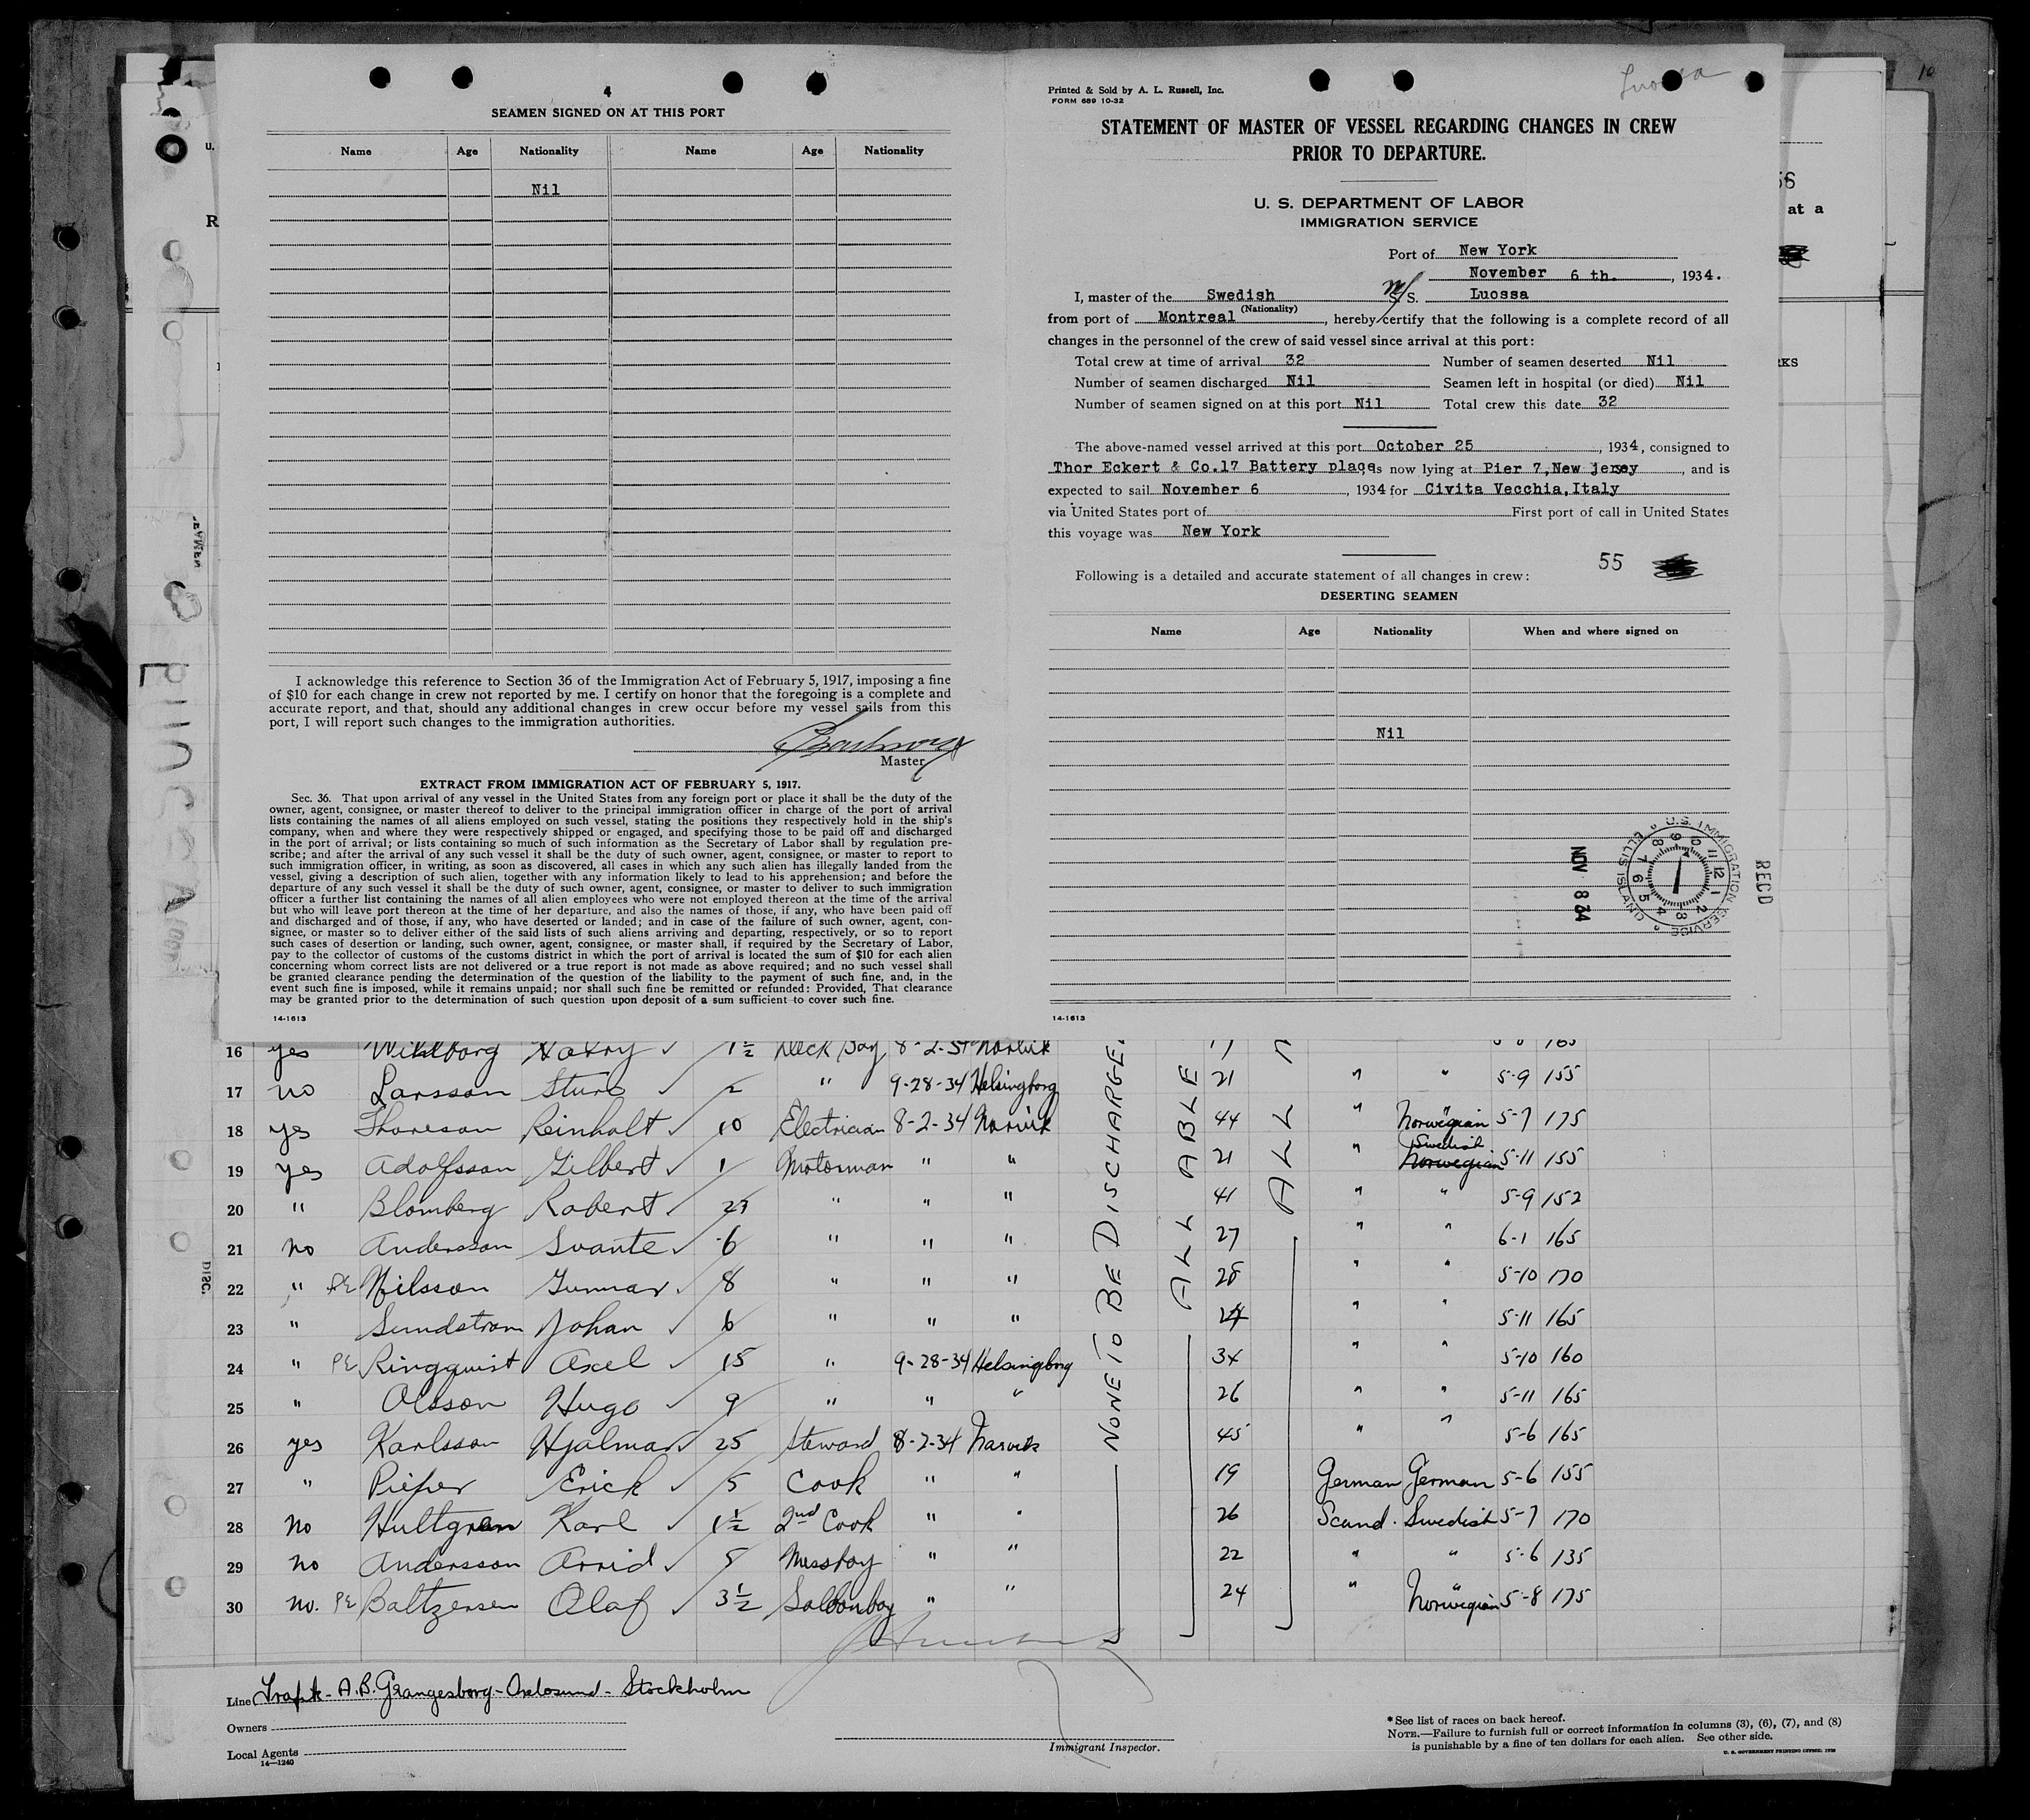 4
SEAMEN SIGNED ON AT THIS PORT
Name Age Nationality Name Age Nationality
Nil
I acknowledge this reference to Section 36 of the Immigration Act of February 5, 1917, imposing a fine
of $10 for each change in crew not reported by me. I certify on honor that the foregoing is a complete and
accurate report, and that, should any additional changes in crew occur before my vessel sails from this
port, I will report such changes to the immigration authorities.
Master
EXTRACT FROM IMMIGRATION ACT OF FEBRUARY 5, 1917.
Sec. 36. That upon arrival of any vessel in the United States from any foreign port or place it shall be the duty of the
owner, agent, consignee, or master thereof to deliver to the principal immigration officer in charge of the port of arrival
lists containing the names of all aliens employed on such vessel, stating the positions they respectively hold in the ship's
company, when and where they were respectively shipped or engaged, and specifying those to be paid off and discharged
in the port of arrival; or lists containing so much of such information as the Secretary of Labor shall by regulation pre-
scribe; and after the arrival of any such vessel it shall be the duty of such owner, agent, consignee, or master to report to
such immigration officer, in writing, as soon as discovered, all cases in which any such alien has illegally landed from the
vessel, giving a description of such alien, together with any information likely to lead to his apprehension; and before the
departure of any such vessel it shall be the duty of such owner, agent, consignee, or master to deliver to such immigration
officer a further list containing the names of all alien employees who were not employed thereon at the time of the arrival
but who will leave port thereon at the time of her departure, and also the names of those, if any, who have been paid off
and discharged and of those, if any, who have deserted or landed; and in case of the failure of such owner, agent, con-
signee, or master so to deliver either of the said lists of such aliens arriving and departing, respectively, or so to report
such cases of desertion or landing, such owner, agent, consignee, or master shall, if required by the Secretary of Labor,
pay to the collector of customs of the customs district in which the port of arrival is located the sum of $10 for each alien
concerning whom correct lists are not delivered or a true report is not made as above required; and no such vessel shall
be granted clearance pending the determination of the question of the liability to the payment of such fine, and, in the
event such fine is imposed, while it remains unpaid; nor shall such fine be remitted or refunded: Provided, That clearance
may be granted prior to the determination of such question upon deposit of a sum sufficient to cover such fine.
14-1613
Luossa
Printed & Sold by A. L. Russell, Inc.
FORM 689 10-32
STATEMENT OF MASTER OF VESSEL REGARDING CHANGES IN CREW
PRIOR TO DEPARTURE.
U. S. DEPARTMENT OF LABOR
IMMIGRATION SERVICE
Port of New York
November 6 th., 1934.
I, master of the Swedish M/S. Luossa
(Nationality)
from port of Montreal, hereby certify that the following is a complete record of all
changes in the personnel of the crew of said vessel since arrival at this port:
Total crew at time of arrival 32 Number of seamen deserted Nil
Number of seamen discharged Nil Seamen left in hospital (or died) Nil
Number of seamen signed on at this port Nil Total crew this date 32
The above-named vessel arrived at this port October 25, 1934, consigned to
Thor Eckert & Co.17 Battery place, is now lying at Pier 7,New jersey, and is
expected to sail November 6, 1934 for Civita Vecchia,Italy
via United States port of First port of call in United States
this voyage was New York
55
Following is a detailed and accurate statement of all changes in crew:
DESERTING SEAMEN
Name Age Nationality When and where signed on
Nil
U.S. IMMIGRATION SERVICE ELLIS ISLAND
REC'D
NOV 8 34
14-1613
NONE TO BE DISCHARGED
ALL ABLE
ALL
16 yes Wihlborg Harry 1½ Deck Boy 8-2-34 Narvik 165
17 no Larsson Sture 2 " 9-28-34 Helsingborg 21 " " 5-9 155
18 yes Thoreson Reinholt 10 Electrician 8-2-34 Narvik 44 " Norwegian 5-7 175
19 yes Adolfsson Gilbert 1 Motorman " " 21 " Swedish Norwegian 5-11 155
20 " Blomberg Robert 27 " " " 41 " " 5-9 152
21 no Andersson Svante 6 " " " 27 " " 6-1 165
22 " PE Nilsson Gunnar 8 " " " 28 " " 5-10 170
23 " Sundstrom Johan 6 " " " 24 " " 5-11 165
24 " PE Ringquist Axel 15 " 9-28-34 Helsingborg 34 " " 5-10 160
25 " Olsson Hugo 9 " " " 26 " " 5-11 165
26 yes Karlsson Hjalmar 25 Steward 8-2-34 Narvik 45 " " 5-6 165
27 " Pieper Erick 5 Cook " " 19 German German 5-6 155
28 No Hultgren Karl 1½ 2nd Cook " " 26 Scand. Swedish 5-7 170
29 No Andersson Arvid 5 Messboy " " 22 " " 5-6 135
30 No. PE Baltzersen Olaf 3½ Saloonboy " " 24 " Norwegian 5-8 175
Line Trafik-A.B. Grangesborg-Oxlosund-Stockholm
Owners
Local Agents
14-1240
Immigrant Inspector.
*See list of races on back hereof.
NOTE.—Failure to furnish full or correct information in columns (3), (6), (7), and (8)
is punishable by a fine of ten dollars for each alien. See other side.
U. S. GOVERNMENT PRINTING OFFICE